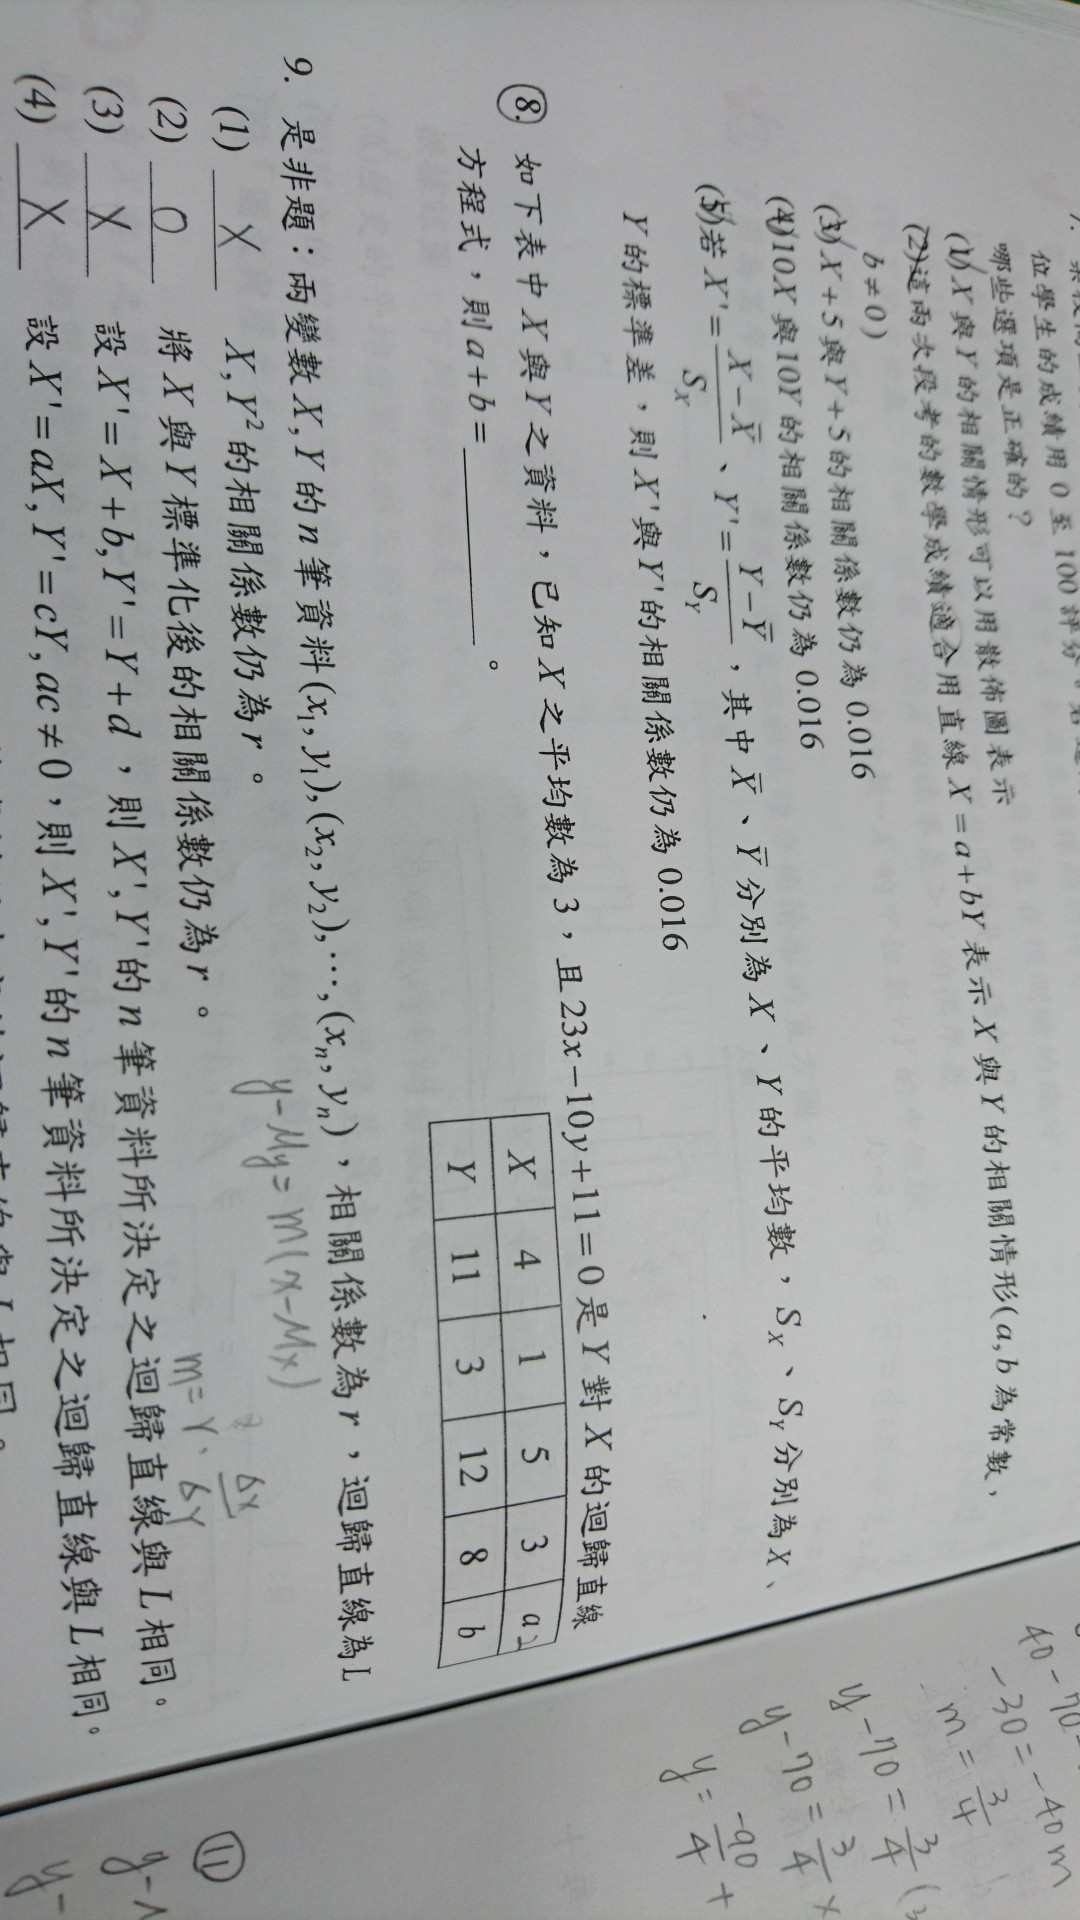 位學生的成績用 0 至 100 評分
哪些選項是正確的?
(1) X 與 Y 的相關情形可以用散佈圖表示
(2) 這兩次段考的數學成績適合用直線 X = a + bY 表示 X 與 Y 的相關情形(a, b 為常數,
b ≠ 0)
(3) X + 5 與 Y + 5 的相關係數仍為 0.016
(4) 10X 與 10Y 的相關係數仍為 0.016
(5) 若 X' = (X - X̄)/S_X、Y' = (Y - Ȳ)/S_Y,其中 X̄、Ȳ 分別為 X、Y 的平均數,S_X、S_Y 分別為 X、
Y 的標準差,則 X' 與 Y' 的相關係數仍為 0.016
8. 如下表中 X 與 Y 之資料,已知 X 之平均數為 3,且 23x - 10y + 11 = 0 是 Y 對 X 的迴歸直線
方程式,則 a + b = ________。
X 4 1 5 3 a 2
Y 11 3 12 8 b
9. 是非題:兩變數 X, Y 的 n 筆資料 (x₁, y₁), (x₂, y₂), …, (xₙ, yₙ),相關係數為 r,迴歸直線為 L
(1) X X, Y² 的相關係數仍為 r。
(2) O 將 X 與 Y 標準化後的相關係數仍為 r。
(3) X 設 X' = X + b, Y' = Y + d,則 X', Y' 的 n 筆資料所決定之迴歸直線與 L 相同。
(4) X 設 X' = aX, Y' = cY, ac ≠ 0,則 X', Y' 的 n 筆資料所決定之迴歸直線與 L 相同。
y - My = m(x - Mx)
m = r ·
6x
6y
40 - 70 =
-30 = -40m
m = 3/4
y - 70 = 3/4 (
y - 70 = 3/4 x
y = -90/4 +
11